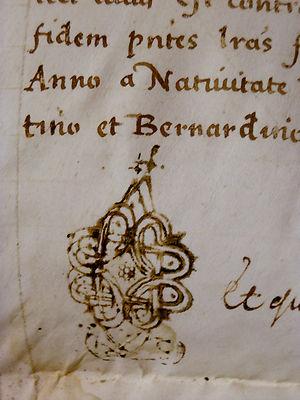 contr
fidem pntes lras f
Anno a Nativitate
tino et Bernardino
Et qu